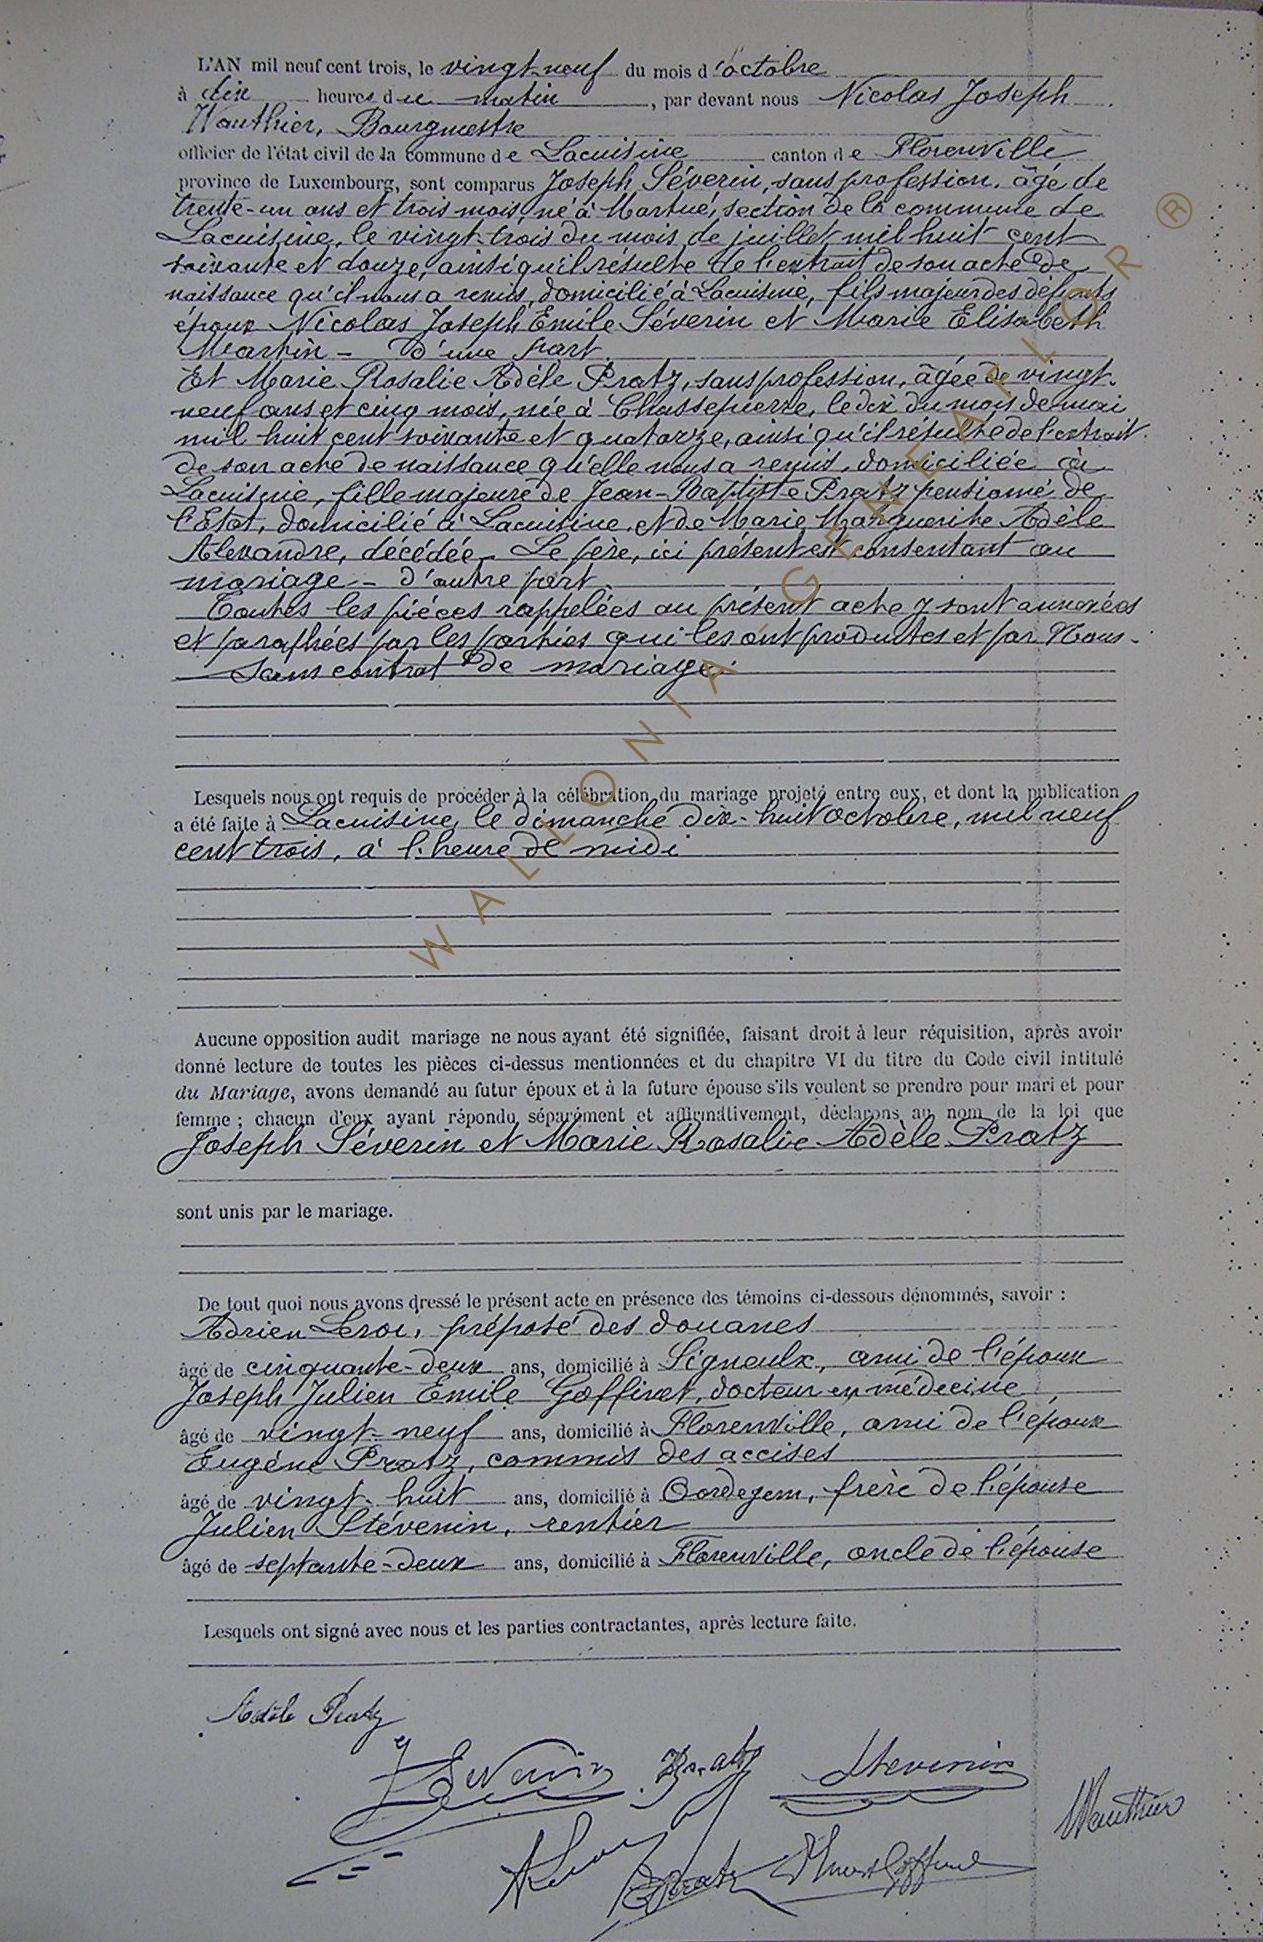 L'AN mil neuf cent trois, le vingt-neuf du mois d'octobre
à dix heures du matin, par devant nous Nicolas Joseph
Wauthier, Bourgmestre
officier de l'état civil de la commune de Lacuisine canton de Florenville
province de Luxembourg, sont comparus Joseph Séverin, sans profession, âgé de
trente-un ans et trois mois, né à Martué, section de la commune de
Lacuisine, le vingt-trois du mois de juillet mil huit cent
soixante et douze, ainsi qu'il résulte de l'extrait de son acte de
naissance qu'il nous a remis, domicilié à Lacuisine, fils majeur des défunts
époux Nicolas Joseph Emile Séverin et Marie Elisabeth
Martin - D'une part.
Et Marie Rosalie Adèle Pratz, sans profession, âgée de vingt-
neuf ans et cinq mois, née à Chassepierre, le dix du mois de mai
mil huit cent soixante et quatorze, ainsi qu'il résulte de l'extrait
de son acte de naissance qu'elle nous a remis, domiciliée à
Lacuisine, fille majeure de Jean-Baptiste Pratz pensionné de
l'Etat, domicilié à Lacuisine, et de Marie Marguerite Adèle
Alexandre, décédée - Le père, ici présent est consentant au
mariage - d'autre part.
Toutes les pièces rappelées au présent acte y sont annexées
et paraphées par les parties qui les ont produites et par Nous -
Sans contrat de mariage.
Lesquels nous ont requis de procéder à la célébration du mariage projeté entre eux, et dont la publication
a été faite à Lacuisine, le dimanche dix-huit octobre, mil neuf
cent trois, à l'heure de midi
Aucune opposition audit mariage ne nous ayant été signifiée, faisant droit à leur réquisition, après avoir
donné lecture de toutes les pièces ci-dessus mentionnées et du chapitre VI du titre du Code civil intitulé
du Mariage, avons demandé au futur époux et à la future épouse s'ils veulent se prendre pour mari et pour
femme ; chacun d'eux ayant répondu séparément et affirmativement, déclarons au nom de la loi que
Joseph Séverin et Marie Rosalie Adèle Pratz
sont unis par le mariage.
De tout quoi nous avons dressé le présent acte en présence des témoins ci-dessous dénommés, savoir :
Adrien Leroi, préposé des douanes
âgé de cinquante-deux ans, domicilié à Signeulx, ami de l'époux
Joseph Julien Emile Goffinet, docteur en médecine
âgé de vingt-neuf ans, domicilié à Florenville, ami de l'époux
Eugène Pratz, commis des accises
âgé de vingt-huit ans, domicilié à Oordegem, frère de l'épouse
Julien Stévenin, rentier
âgé de septante-deux ans, domicilié à Florenville, oncle de l'épouse
Lesquels ont signé avec nous et les parties contractantes, après lecture faite.
Adèle Pratz
Séverin Pratz Stevenin
Wauthier
ALeroi EPratz Goffinet
WALLONIA - GENEAFLOR ®